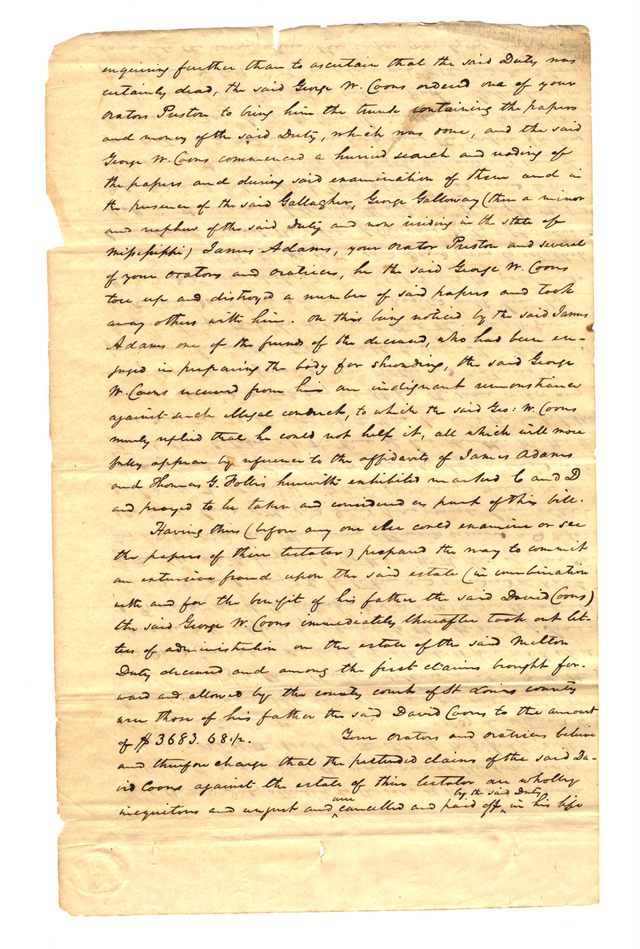 enquiring further than to ascertain that the said Duty was
certainly dead, the said George W. Coons ordered one of your
orators Preston to bring him the trunk containing the papers
and money of the said Duty, which was done, and the said
George W. Coons commenced a hurried search and reading of
the papers and during said examination of them and in
the presence of the said Gallagher, George Galloway (then a minor
and nephew of the said Duty and now residing in the state of
Mississippi) James Adams, your orator Preston and several
of your orators and oratrices, he the said George W. Coons
tore up and distroyed a number of said papers and took
away others with him. On this being noticed by the said James
Adams one of the friends of the deceased, who had been en-
gaged in preparing the body for shrouding, the said George
W. Coons received from him an indignant remonstrance
against such illegal conduct, to which the said Geo: W. Coons
merely replied that he could not help it, all which will more
fully appear by reference to the affidavits of James Adams
and Thomas G. herewith exhibited marked C and D
and prayed to be taken and considered as part of this bill.
Having thus (before any one else could examine or see
the papers of their testator) prepared the way to commit
an extensive fraud upon the said estate (in combination
with and for the benefit of his father the said David Coons)
the said George W. Coons immediately thereafter took out let-
ters of administration on the estate of the said Milton
Duty deceased and among the first claims brought for-
ward and allowed by the county court of St Louis county
are those of his father the said David Coons to the amount
of $3683.68 1/2. Your orators and oratrices believe
and therefore charge that the pretended claims of the said Da-
vid Coons against the estate of their testator are wholly
by the said Duty
iniquitous and unjust and were cancelled and paid off in his life